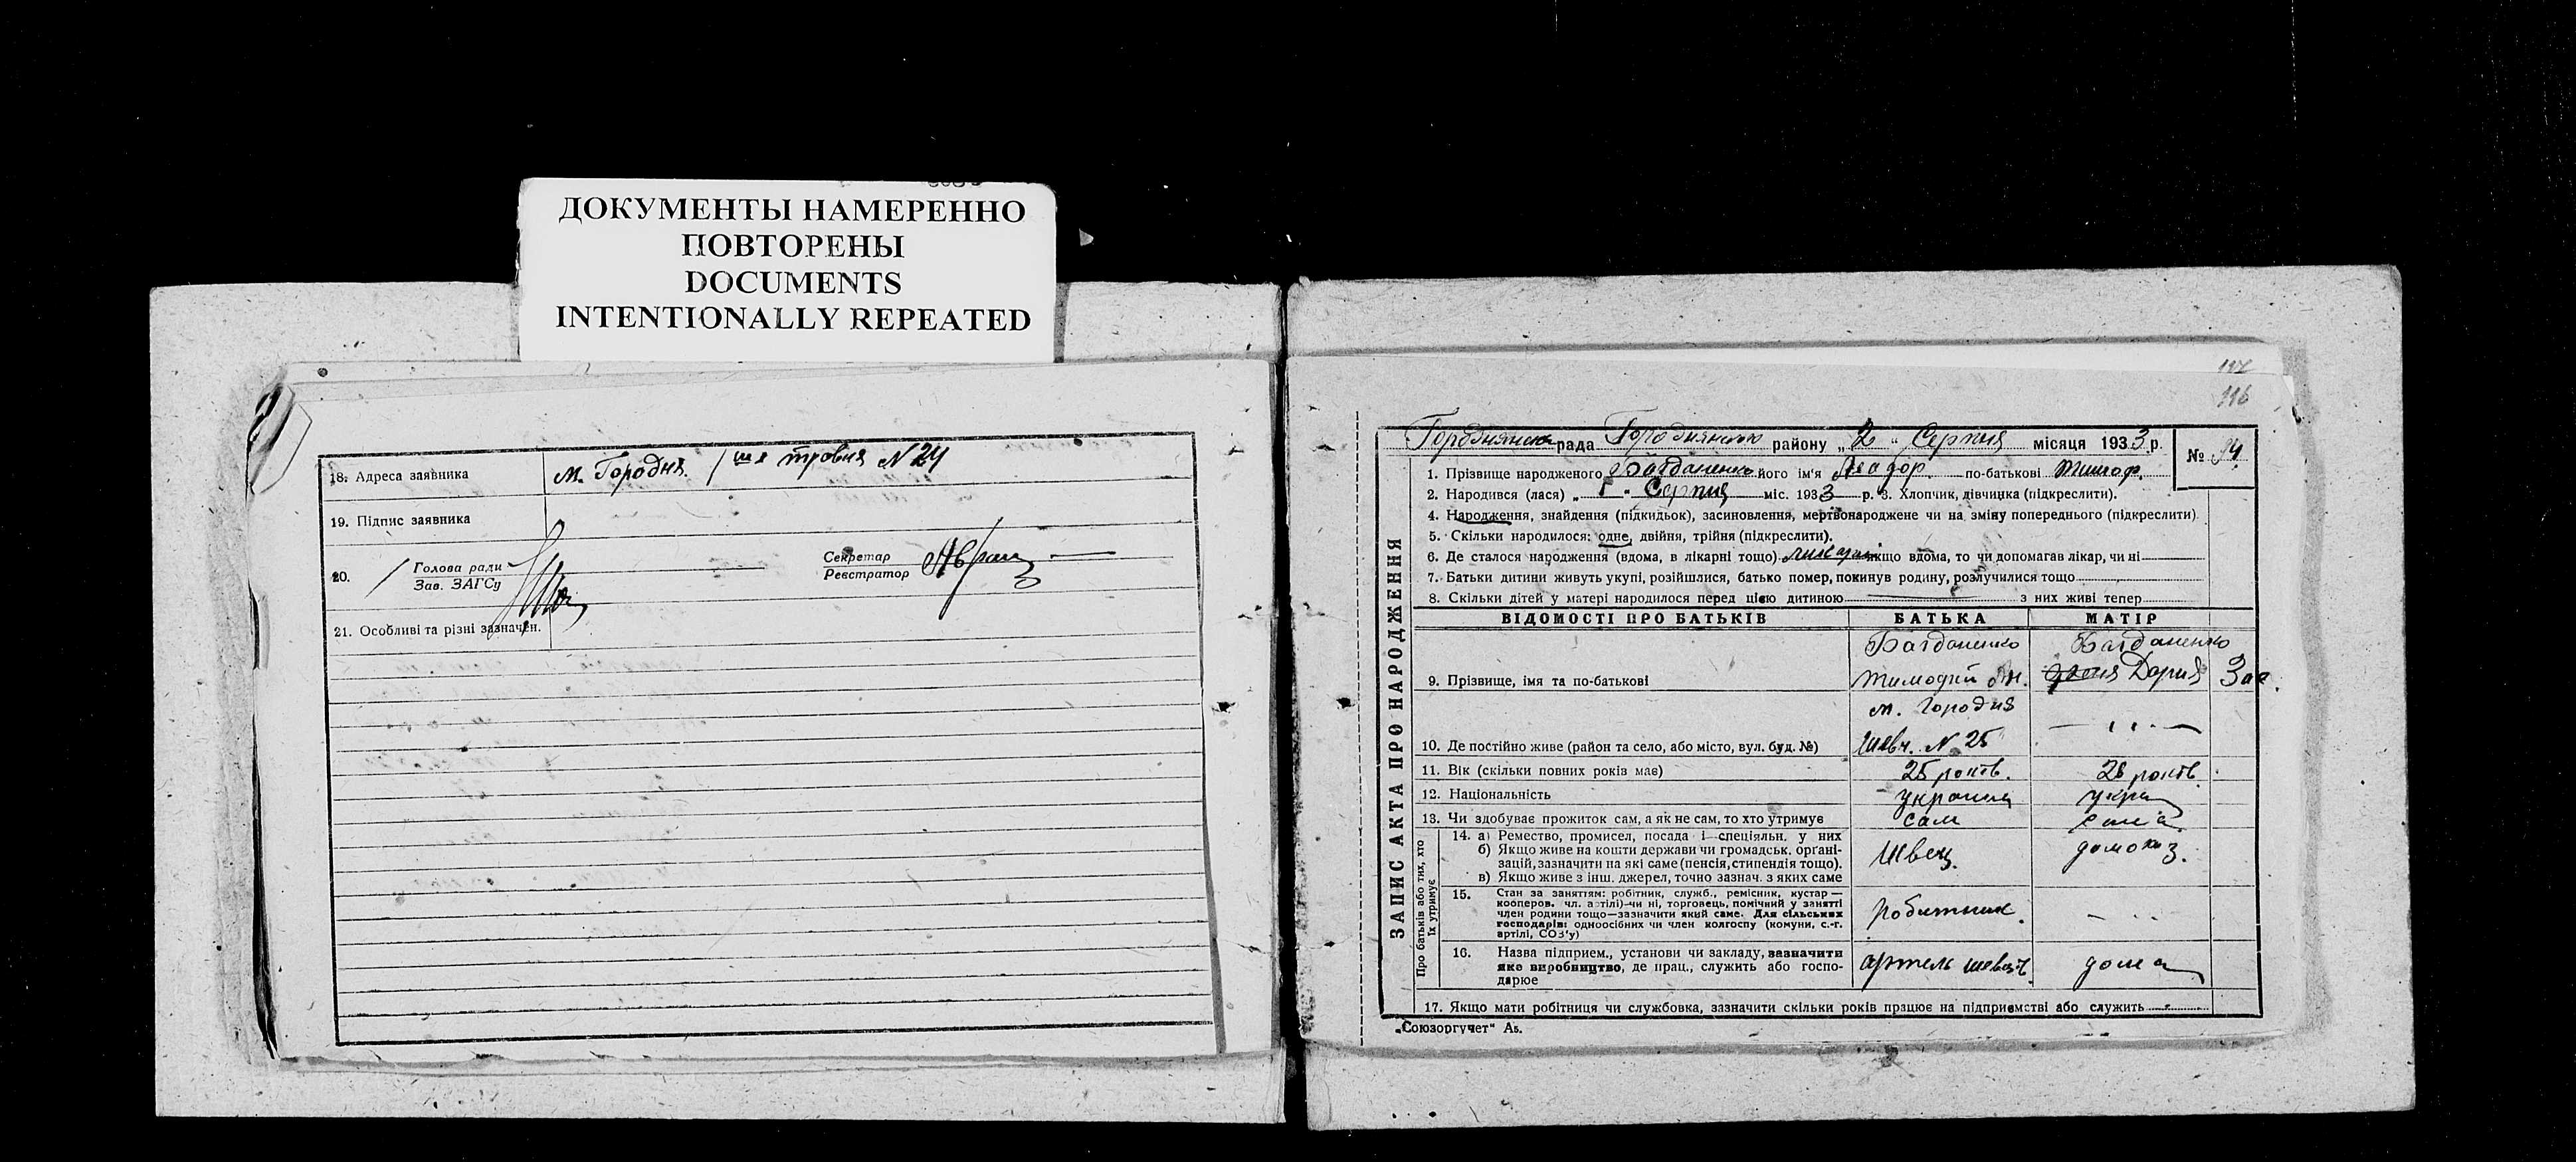 ДОКУМЕНТЫ НАМЕРЕННО
ПОВТОРЕНЫ
DOCUMENTS
INTENTIONALLY REPEATED
18. Адреса заявника м. Городня. 1ша травня N 24
19. Підпис заявника
20. Голова ради
Зав. ЗАГСу
Секретар
Реєстратор
21. Особливі та різні зазначен.
117
116
Городнянська рада Городнянського району „2" Серпня місяця 1933 р.
№ 94.
1. Прізвище народженого Богданенко його ім'я по-батькові Тимоф.
2. Народився (лася) „1" Серпня міс. 1933 р. 3. Хлопчик, дівчинка (підкреслити).
4. Народження, знайдення (підкидьок), засиновлення, мертвонароджене чи на зміну попереднього (підкреслити)
5. Скільки народилося: одне, двійня, трійня (підкреслити).
6. Де сталося народження (вдома, в лікарні тощо) якщо вдома, то чи допомагав лікар, чи ні
7. Батьки дитини живуть укупі, розійшлися, батько помер, покинув родину, розлучилися тощо
8. Скільки дітей у матері народилося перед цією дитиною з них живі тепер
ЗАПИС АКТА ПРО НАРОДЖЕННЯ
ВІДОМОСТІ ПРО БАТЬКІВ БАТЬКА МАТІР
Богданенко Богданенко
9. Прізвище, імя та по-батькові Тимофій Дария
м. Городня
10. Де постійно живе (район та село, або місто, вул. буд. №) Шевч. N 25 — " —
11. Вік (скільки повних років має) 25 років. 26 років
12. Національність україн укра
13. Чи здобуває прожиток сам, а як не сам, то хто утримує сам сама
Про батьків або тих, хто
їх утримує
14. а) Ремество, промисел, посада і спеціяльн. у них
б) Якщо живе на кошти держави чи громадськ. органі-
зацій, зазначити на які саме (пенсія, стипендія тощо).
в) Якщо живе з інш. джерел, точно зазнач. з яких саме
Швец. домохоз.
15. Стан за заняттям: робітник, служб., ремісник, кустар —
кооперов. чл. артілі)—чи ні, торговець, помічний у занятті
член родини тощо—зазначити який саме. Для сільських
господарів: одноосібних чи член колгоспу (комуни, с.-г.
артілі, СОЗ'у)
робітник. — " —
16. Назва підприєм., установи чи закладу, зазначити
яке виробництво, де прац., служить або госпо-
дарює
артель дома
17. Якщо мати робітниця чи службовка, зазначити скільки років працює на підприємстві або служить
„Союзоргучет" Аб.